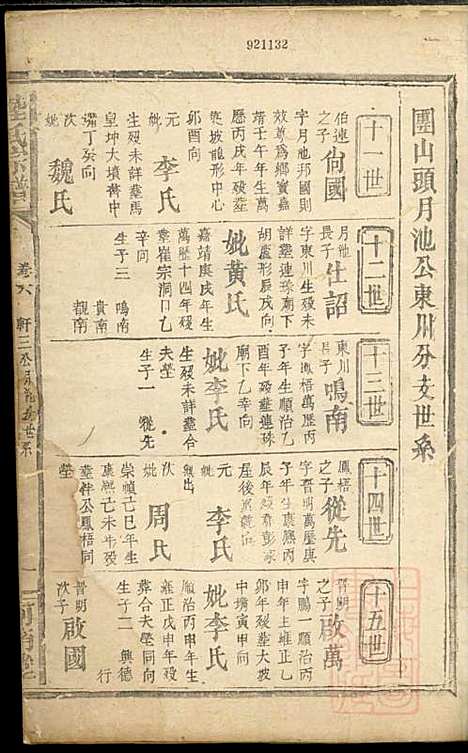 921132
團山頭月池公東川分支世系
十一世
伯達
之子
尙國
字月池邦國則
效尊爲鄉賓嘉
靖壬午年生萬
曆丙戌年歿塟
坡龍形中心
卯酉向
元
妣
李氏
生歿未詳塟馬
皇坤大墳背中
嘴丁癸向
次
妣
魏氏
十二世
月池
長子
仕詔
字東川生歿未
詳塟連珠廟下
胡蘆形辰戍向
妣黃氏
嘉靖庚戌年生
萬曆十四年歿
塟崔宗洞口乙
辛向
生子三
鳴南
貴南
觀南
十三世
東川
長子
鳴南
字鳳梧萬曆丙
子年生順治乙
酉年歿塟連珠
廟下乙幸向
妣李氏
生歿未詳塟合
夫塋
生子一
從先
十四世
鳳梧
之子
從先
字晋明萬曆庚
子年生康熙丙
辰年歿塟彭家
屋後
元
妣
李氏
無出
次
妣
周氏
崇禎己巳年生
康熙己未年歿
塟伴公鳳梧同
塋
十五世
晋明
之子
啟萬
字鵬一順治丙
申年生雍正乙
卯年歿塟大坡
中墳寅甲向
妣李氏
順治丙申年生
雍正戊申年歿
葬合夫塋同向
生子二
興德
行
晋明
次子
啟國
卷六
軒三公月池支世系